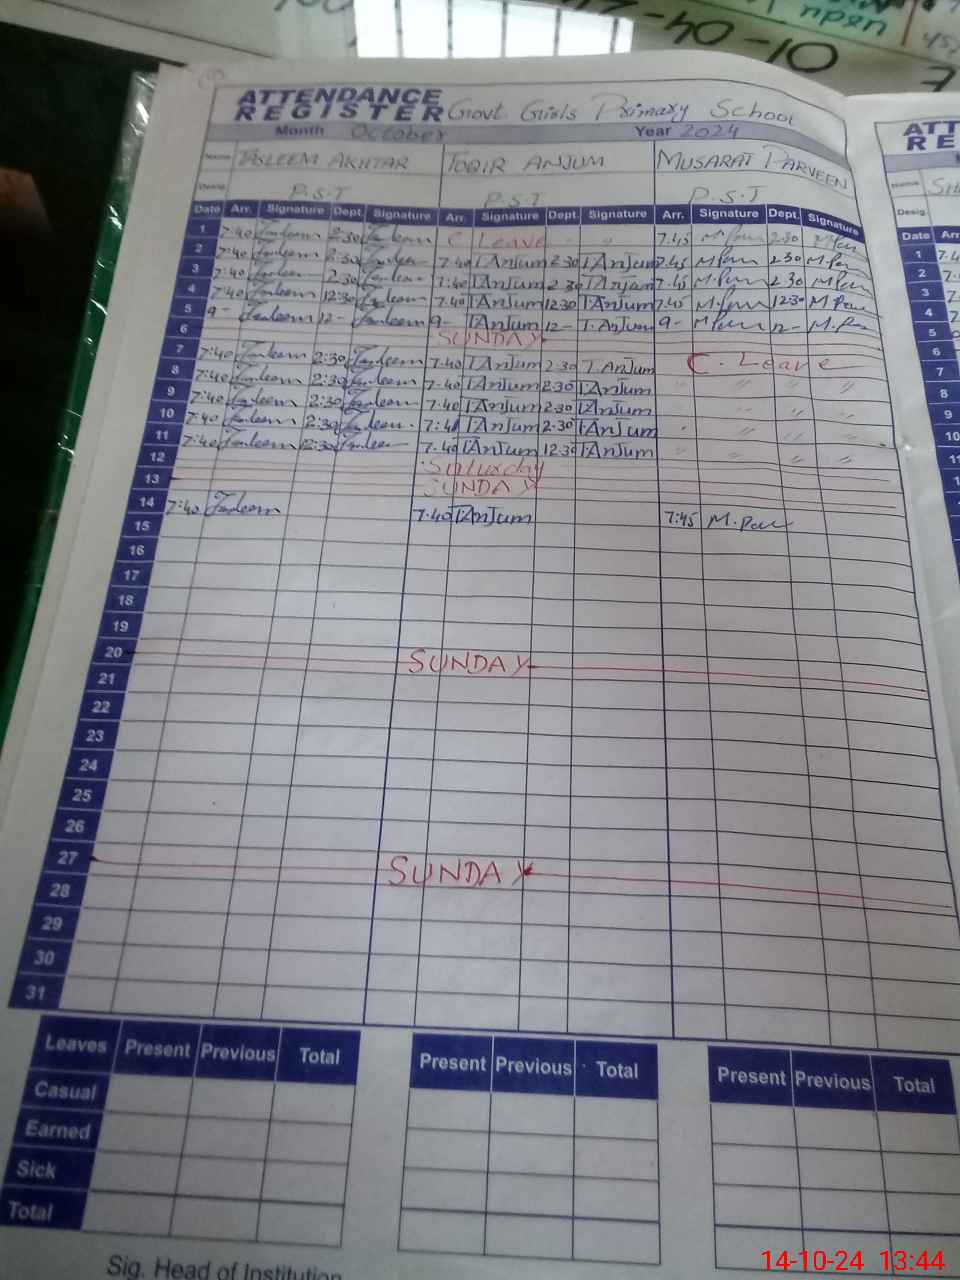 ATTENDANCE REGISTER Govt Girls Primary School
Month October Year 2024
Name TASLEEM AKHTAR TOBIR ANJUM MUSARAT PARVEEN
Desig. P.S.T P.S.T P.S.T
Date Arr. Signature Dept. Signature Arr. Signature Dept. Signature Arr. Signature Dept. Signature
1 7:40 Tasleem 2:30 Tasleem C Leave " " 7.45 M Par 2.30 M Par
2 7:40 Tasleem 2:30 Tasleem 7.40 TAnJum 2.30 TAnJum 7.45 M Par 2.30 M Par
3 7:40 Tasleem 2.30 Tasleem 7:40 TAnJum 2.30 TAnjum 7.45 M Par 2.30 M Par
4 7:40 Tasleem 12:30 Tasleem 7.40 TAnJum 12.30 TAnJum 7.45 M Par 12.30 M Par
5 9- Tasleem 12- Tasleem 9- TAnJum 12- T.AnJum 9- M Par 12- M.Par
6 SUNDAY
7 7:40 Tasleem 2:30 Tasleem 7.40 TAnJum 2.30 T.AnJum C. Leave
8 7:40 Tasleem 2:30 Tasleem 7.40 TAnJum 2.30 TAnJum " " " "
9 7:40 Tasleem 2:30 Tasleem 7.40 TAnJum 2.30 TAnJum " " " "
10 7:40 Tasleem 2:30 Tasleem 7:40 TAnJum 2.30 TAnJum " " " "
11 7:40 Tasleem 12:30 Tasleem 7.40 TAnJum 12.30 TAnJum " " " "
12 Saturday
13 SUNDAY
14 7:40 Tasleem 7.40 TAnJum 7:45 M.Par
15
16
17
18
19
20 SUNDAY
21
22
23
24
25
26
27 SUNDAY
28
29
30
31
Leaves Present Previous Total Present Previous Total Present Previous Total
Casual
Earned
Sick
Total
Sig. Head of Institution
14-10-24 13:44